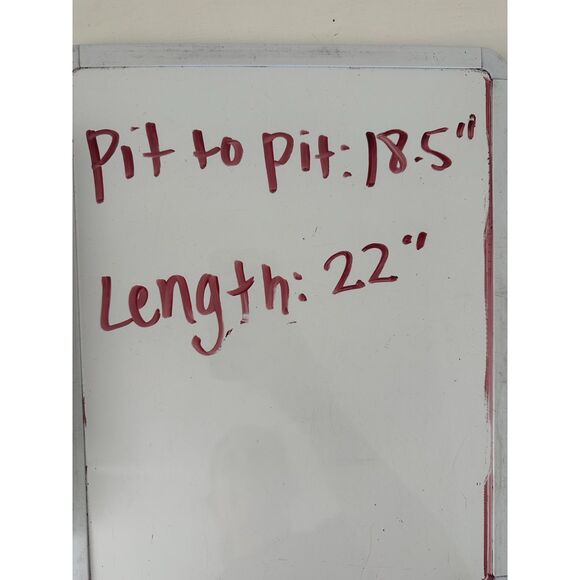 Pit to pit: 18.5"
Length: 22"